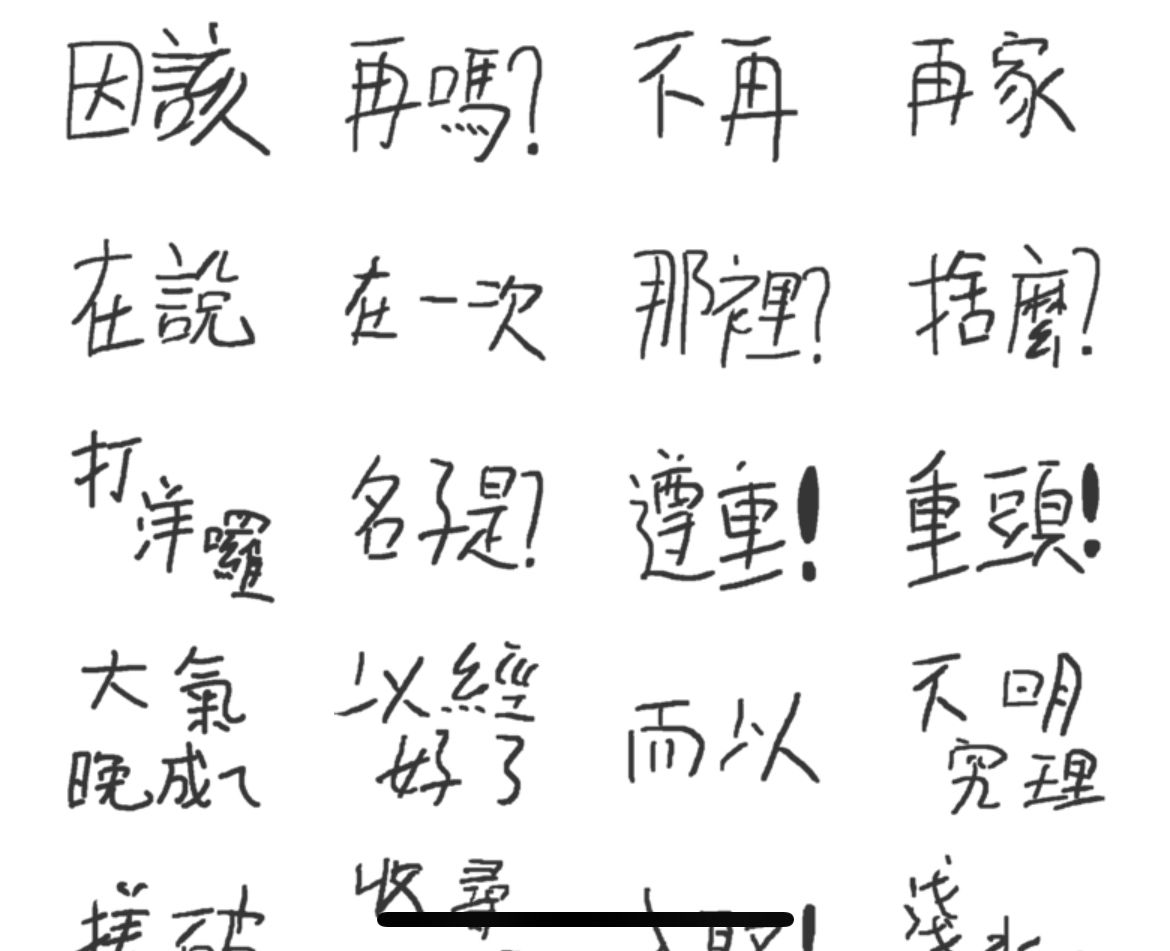 因該 再嗎? 不再 再家
在說 在一次 那裡? 捨麼?
打洋囉 名子是? 遵重! 重頭!
大氣 以經 而以 不明
晚成ㄟ 好了 究理
收尋